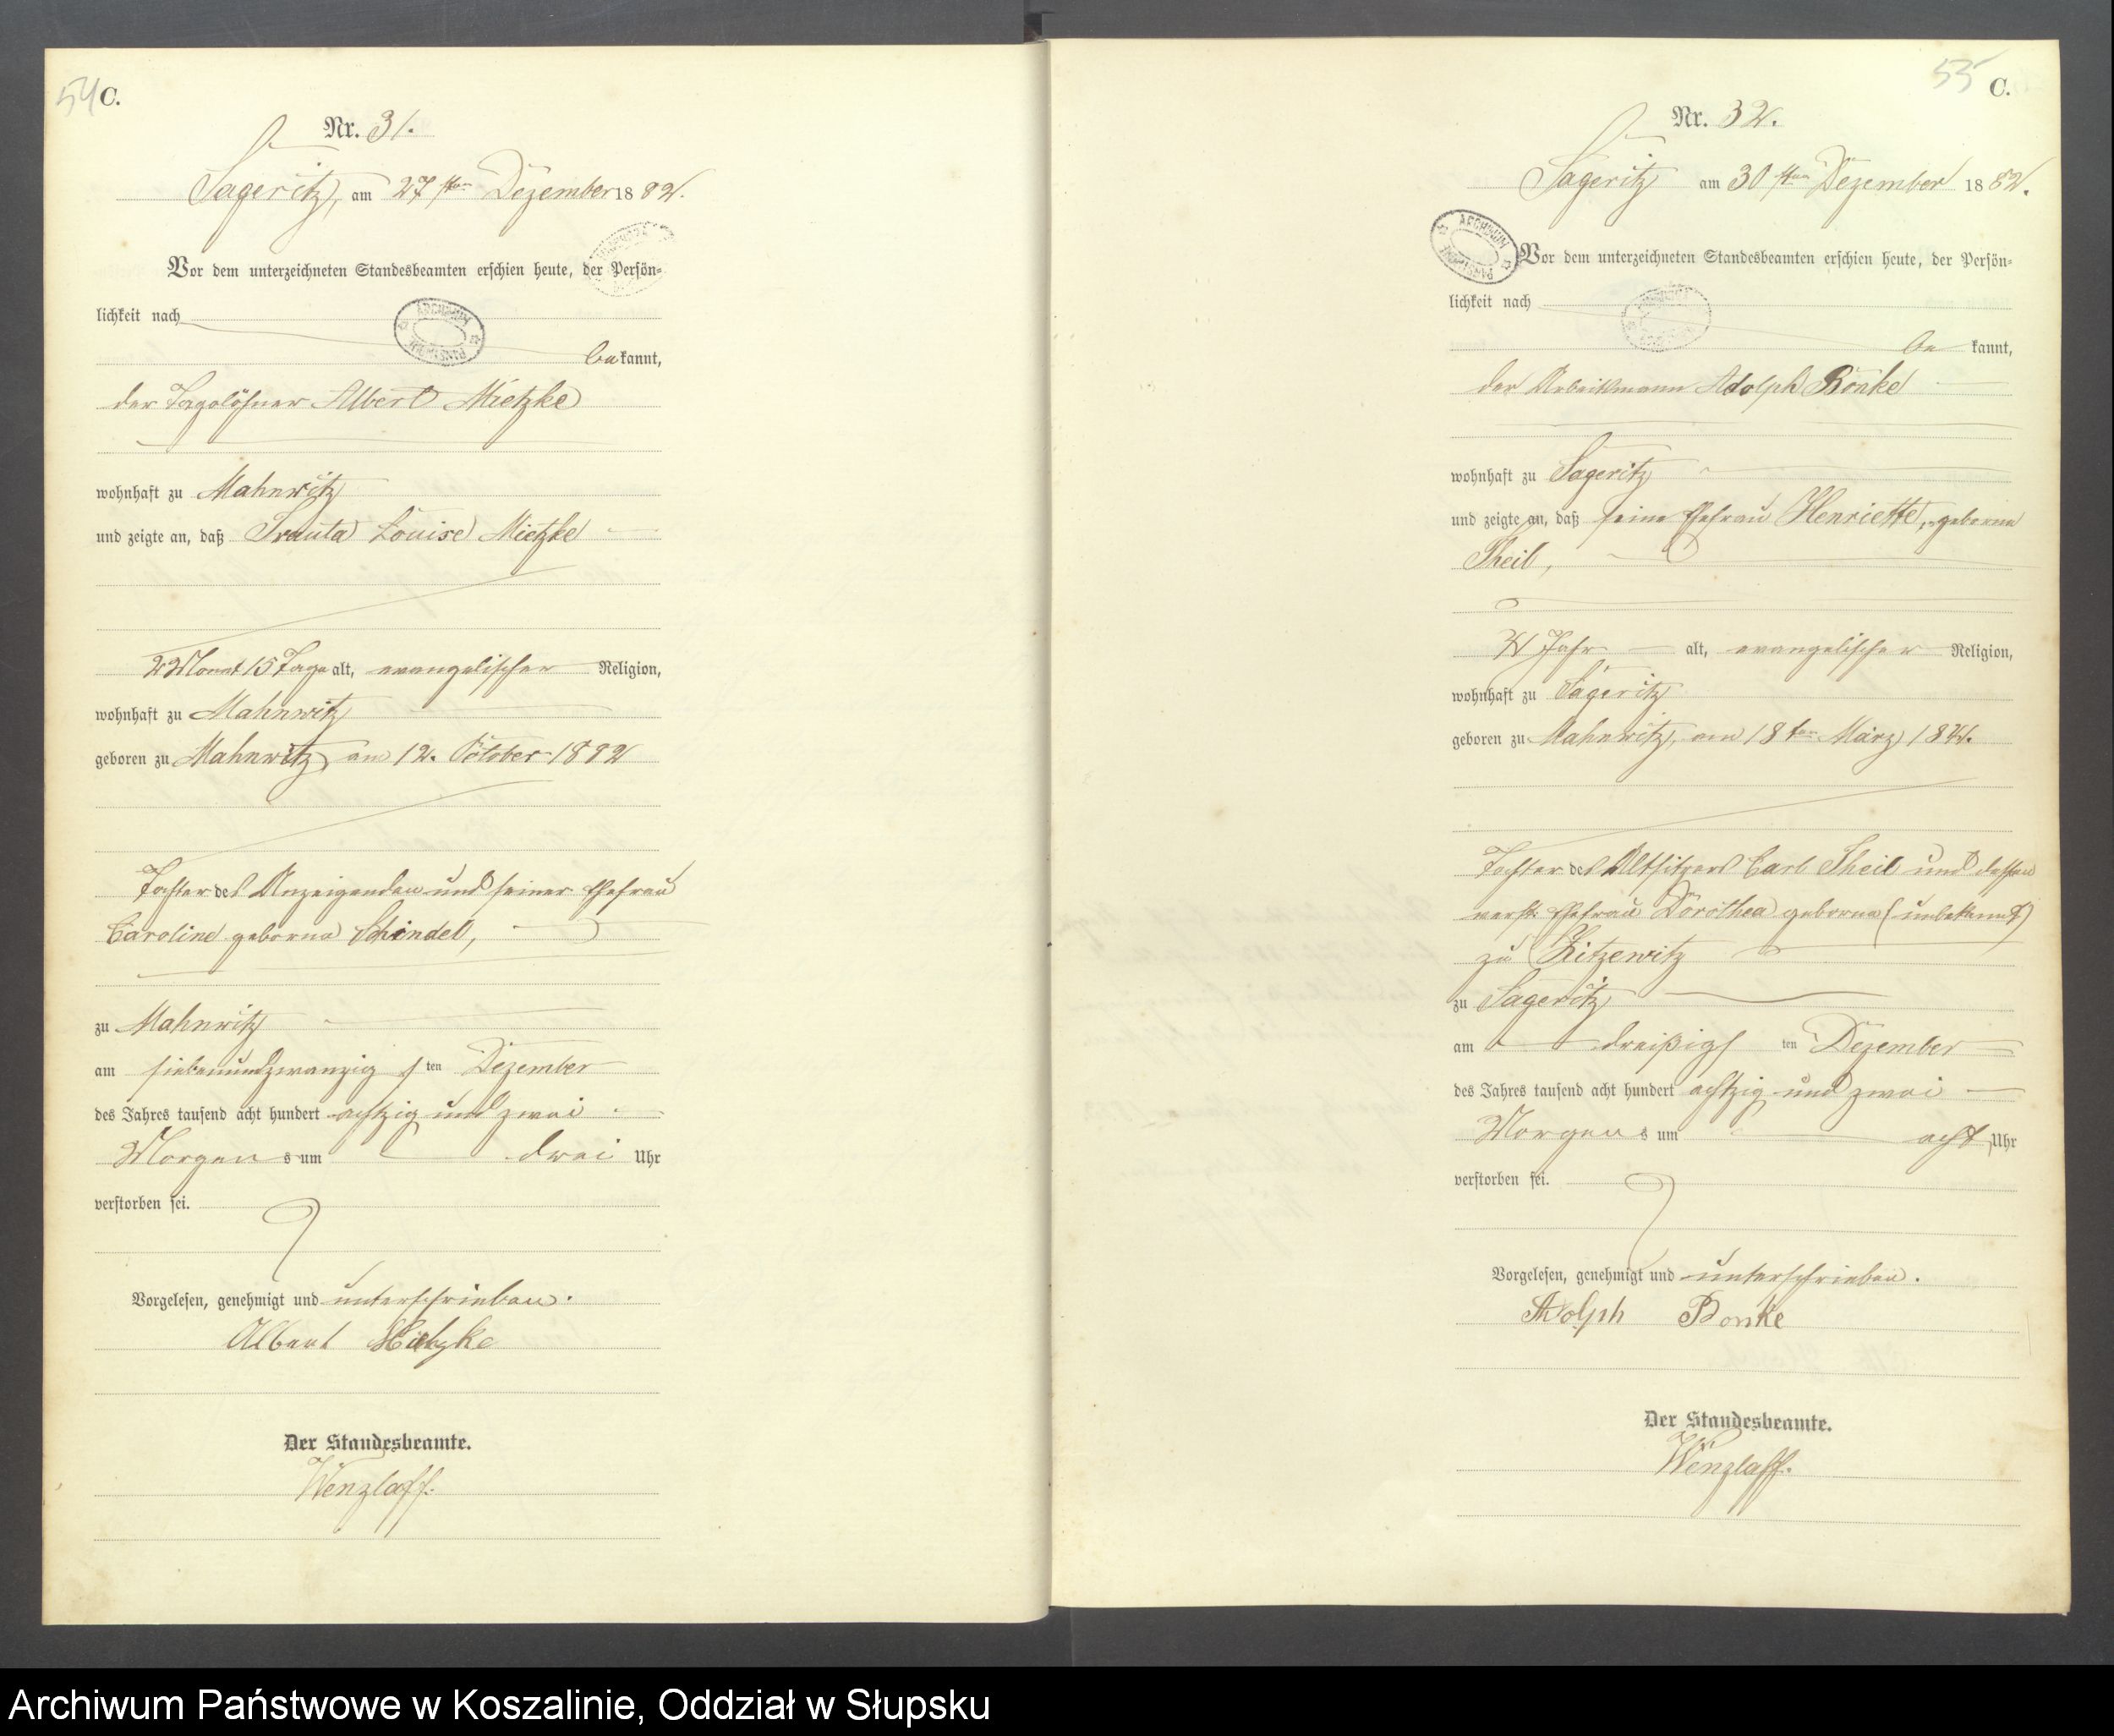 54 C.
Nr. 31.
Sageritz, am 27sten Dezember 1882.
Vor dem unterzeichneten Standesbeamten erschien heute, der Persön-
lichkeit nach
be kannt,
der Tagelöhner Albert Mietzke
wohnhaft zu Mahnwitz
und zeigte an, daß Louise Mietzke
2 Monat 15 Tage alt, evangelischer Religion,
wohnhaft zu Mahnwitz
geboren zu Mahnwitz, am 12. October 1882
Tochter des Anzeigenden und seiner Ehefrau
Caroline geborne Schindel,
zu Mahnwitz
am siebenundzwanzigsten Dezember
des Jahres tausend acht hundert achtzig und zwei
Morgens um drei Uhr
verstorben sei.
Vorgelesen, genehmigt und unterschrieben.
Albert Mietzke
Der Standesbeamte.
Wenzlaff.
55 C.
Nr. 32.
Sageritz am 30sten Dezember 1882.
ARCHIWUM PAŃSTWOWE
Vor dem unterzeichneten Standesbeamten erschien heute, der Persön-
lichkeit nach
be kannt,
der Arbeitsmann Adolph Bonke
wohnhaft zu Sageritz
und zeigte an, daß seine Ehefrau Henriette, geborne
Theil,
Jahr alt, evangelischer Religion,
wohnhaft zu Sageritz
geboren zu Mahnwitz, am 18ten März
Tochter des Altsitzers Carl Theil und dessen
verst. Ehefrau Dorothea geborne (unbekannt)
zu Kitzewitz
zu Sageritz
am dreißigsten Dezember
des Jahres tausend acht hundert achtzig und zwei
Morgens um acht Uhr
verstorben sei.
Vorgelesen, genehmigt und unterschrieben.
Adolph Bonke
Der Standesbeamte.
Wenzlaff.
Archiwum Państwowe w Koszalinie, Oddział w Słupsku